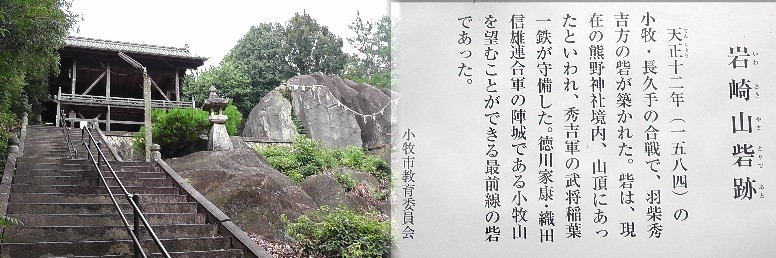 岩崎山砦跡
いわ さき やま とりで あと
天正十二年（一五八四）の
てんしょう
小牧・長久手の合戦で、羽柴秀
吉方の砦が築かれた。砦は、現
在の熊野神社境内、山頂にあっ
たといわれ、秀吉軍の武将稲葉
一鉄が守備した。徳川家康・織田
信雄連合軍の陣城である小牧山
を望むことができる最前線の砦
であった。
小牧市教育委員会